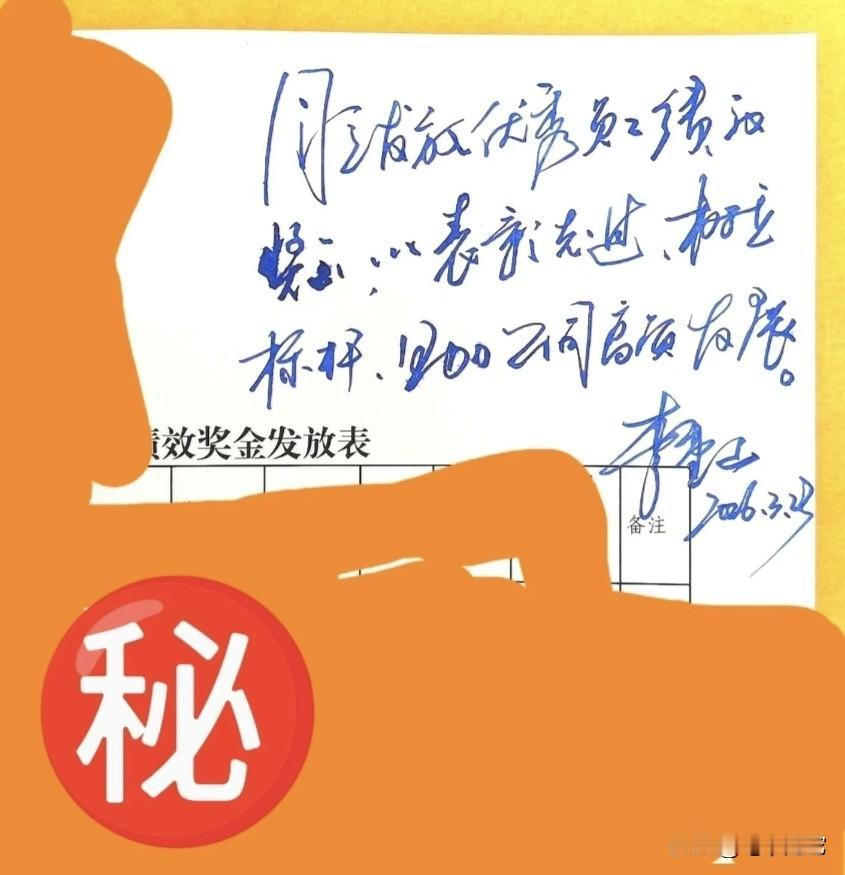 同意发放优秀员工绩效
奖金,以表彰先进、树立
标杆、助力公司高质发展。
李
2026.3.25
绩效奖金发放表
备注
秘